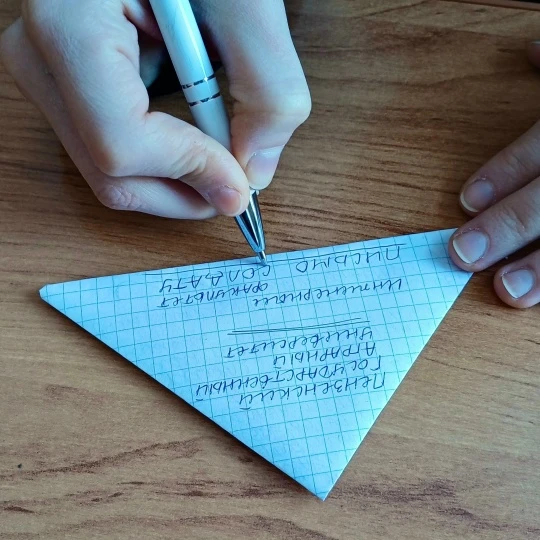 ПЕНЗЕНСКИЙ
ГОСУДАРСТВЕННЫЙ
АГРАРНЫЙ
УНИВЕРСИТЕТ
Инженерный факультет
ПИСЬМО СОЛДАТУ